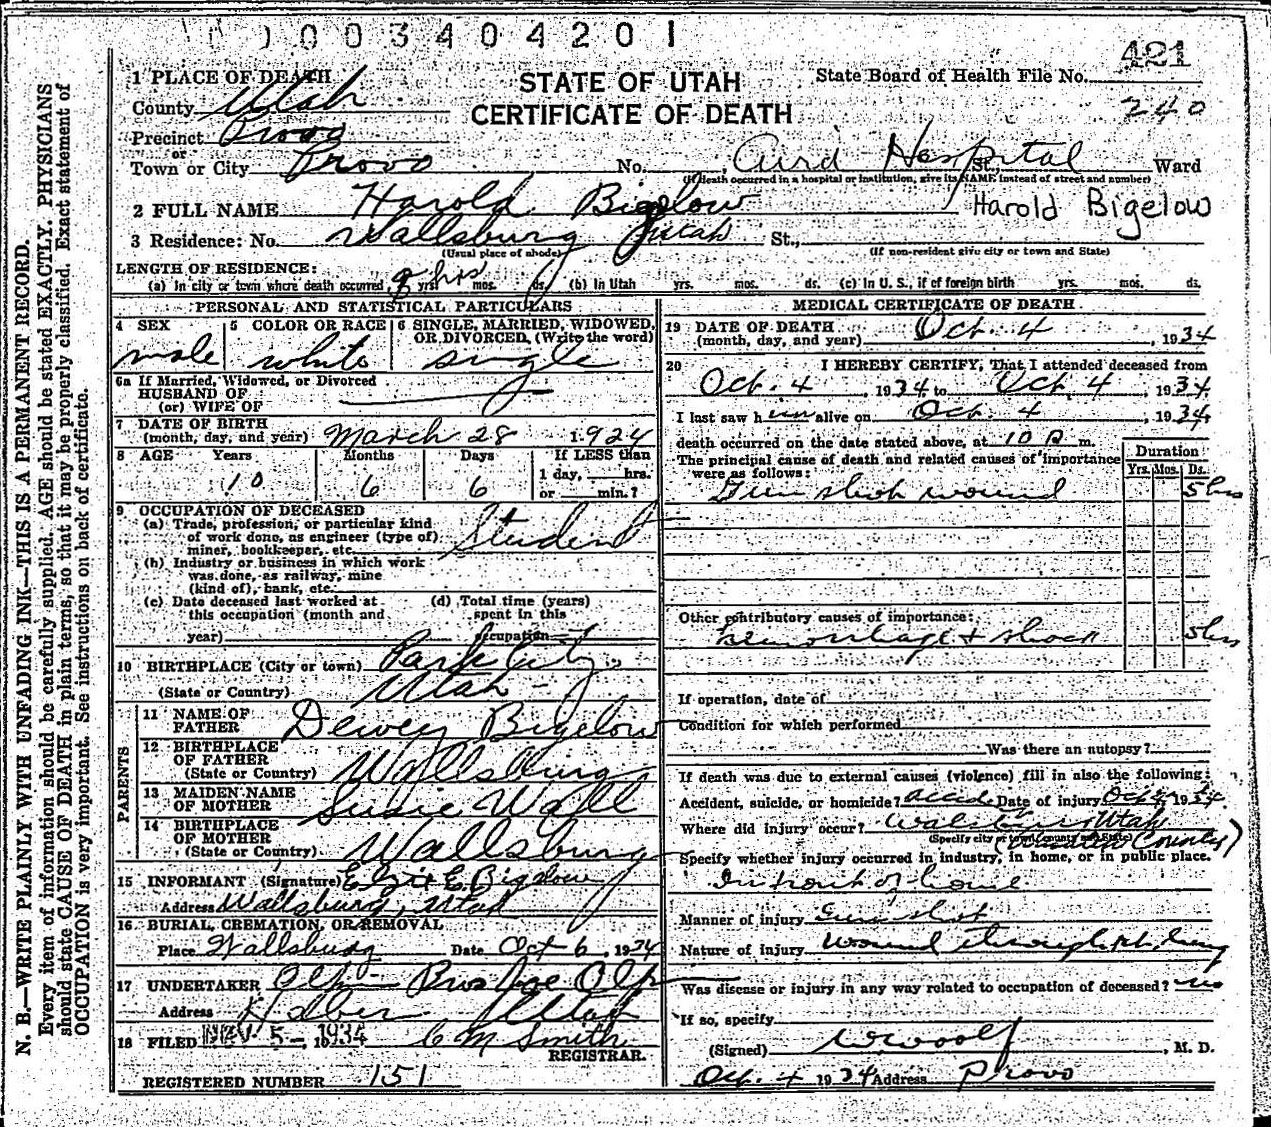 0 0 3 4 0 4 2 0 1
421
1 PLACE OF DEATH
STATE OF UTAH
State Board of Health File No.
County Utah
CERTIFICATE OF DEATH
240
Precinct Provo
or
Town or City Provo No. Aird Hospital St., Ward
(If death occurred in a hospital or institution, give its NAME instead of street and number)
2 FULL NAME Harold Bigelow Harold Bigelow
3 Residence: No. Wallsburg Utah St.,
(Usual place of abode) (If non-resident give city or town and State)
LENGTH OF RESIDENCE:
(a) In city or town where death occurred yrs. hrs mos. ds. (b) In Utah yrs. mos. ds. (c) In U. S., if of foreign birth yrs. mos. ds.
PERSONAL AND STATISTICAL PARTICULARS
4 SEX 5 COLOR OR RACE 6 SINGLE, MARRIED, WIDOWED,
OR DIVORCED, (Write the word)
male white single
6a If Married, Widowed, or Divorced
HUSBAND OF
(or) WIFE OF
7 DATE OF BIRTH
(month, day, and year) March 28 1924
8 AGE Years Months Days If LESS than
1 day, hrs.
10 6 6 or min.?
9 OCCUPATION OF DECEASED
(a) Trade, profession, or particular kind
of work done, as engineer (type of)
miner, bookkeeper, etc. Student
(b) Industry or business in which work
was done, as railway, mine
(kind of), bank, etc.
(c) Date deceased last worked at (d) Total time (years)
this occupation (month and spent in this
year) occupation
10 BIRTHPLACE (City or town) Park City
(State or Country) Utah
PARENTS
11 NAME OF
FATHER Dewey Bigelow
12 BIRTHPLACE
OF FATHER
(State or Country) Wallsburg
13 MAIDEN NAME
OF MOTHER Susie Wall
14 BIRTHPLACE
OF MOTHER
(State or Country) Wallsburg
15 INFORMANT (Signature) E. Bigelow
Address Wallsburg, Utah
16 BURIAL, CREMATION, OR REMOVAL
Place Wallsburg Date Oct 6, 1934
17 UNDERTAKER Olp Bros Joe Olp
Address Heber Utah
18 FILED NOV 5- 1934 C M Smith
REGISTRAR.
REGISTERED NUMBER 151
MEDICAL CERTIFICATE OF DEATH
19 DATE OF DEATH
(month, day, and year) Oct. 4, 1934
20 I HEREBY CERTIFY, That I attended deceased from
Oct. 4, 1934, to Oct 4, 1934.
I last saw him alive on Oct. 4, 1934,
death occurred on the date stated above, at 10 P m.
The principal cause of death and related causes of importance
were as follows:
Duration
Yrs. Mos. Ds.
Gun shot wound 5 hrs
Other contributory causes of importance:
Hemorrhage + shock 5 hrs
If operation, date of
Condition for which performed
Was there an autopsy?
If death was due to external causes (violence) fill in also the following:
Accident, suicide, or homicide? Accid. Date of injury Oct 4, 1934
Where did injury occur? Wallsburg Utah
(Specify city or town, county and State) County)
Specify whether injury occurred in industry, in home, or in public place.
In front of home
Manner of injury Gun shot
Nature of injury Wound through
Was disease or injury in any way related to occupation of deceased? no
If so, specify
(Signed) W Woolf, M. D.
Oct. 4 1934 Address Provo
N. B.—WRITE PLAINLY WITH UNFADING INK—THIS IS A PERMANENT RECORD.
Every item of information should be carefully supplied. AGE should be stated EXACTLY. PHYSICIANS
should state CAUSE OF DEATH in plain terms, so that it may be properly classified. Exact statement of
OCCUPATION is very important. See instructions on back of certificate.